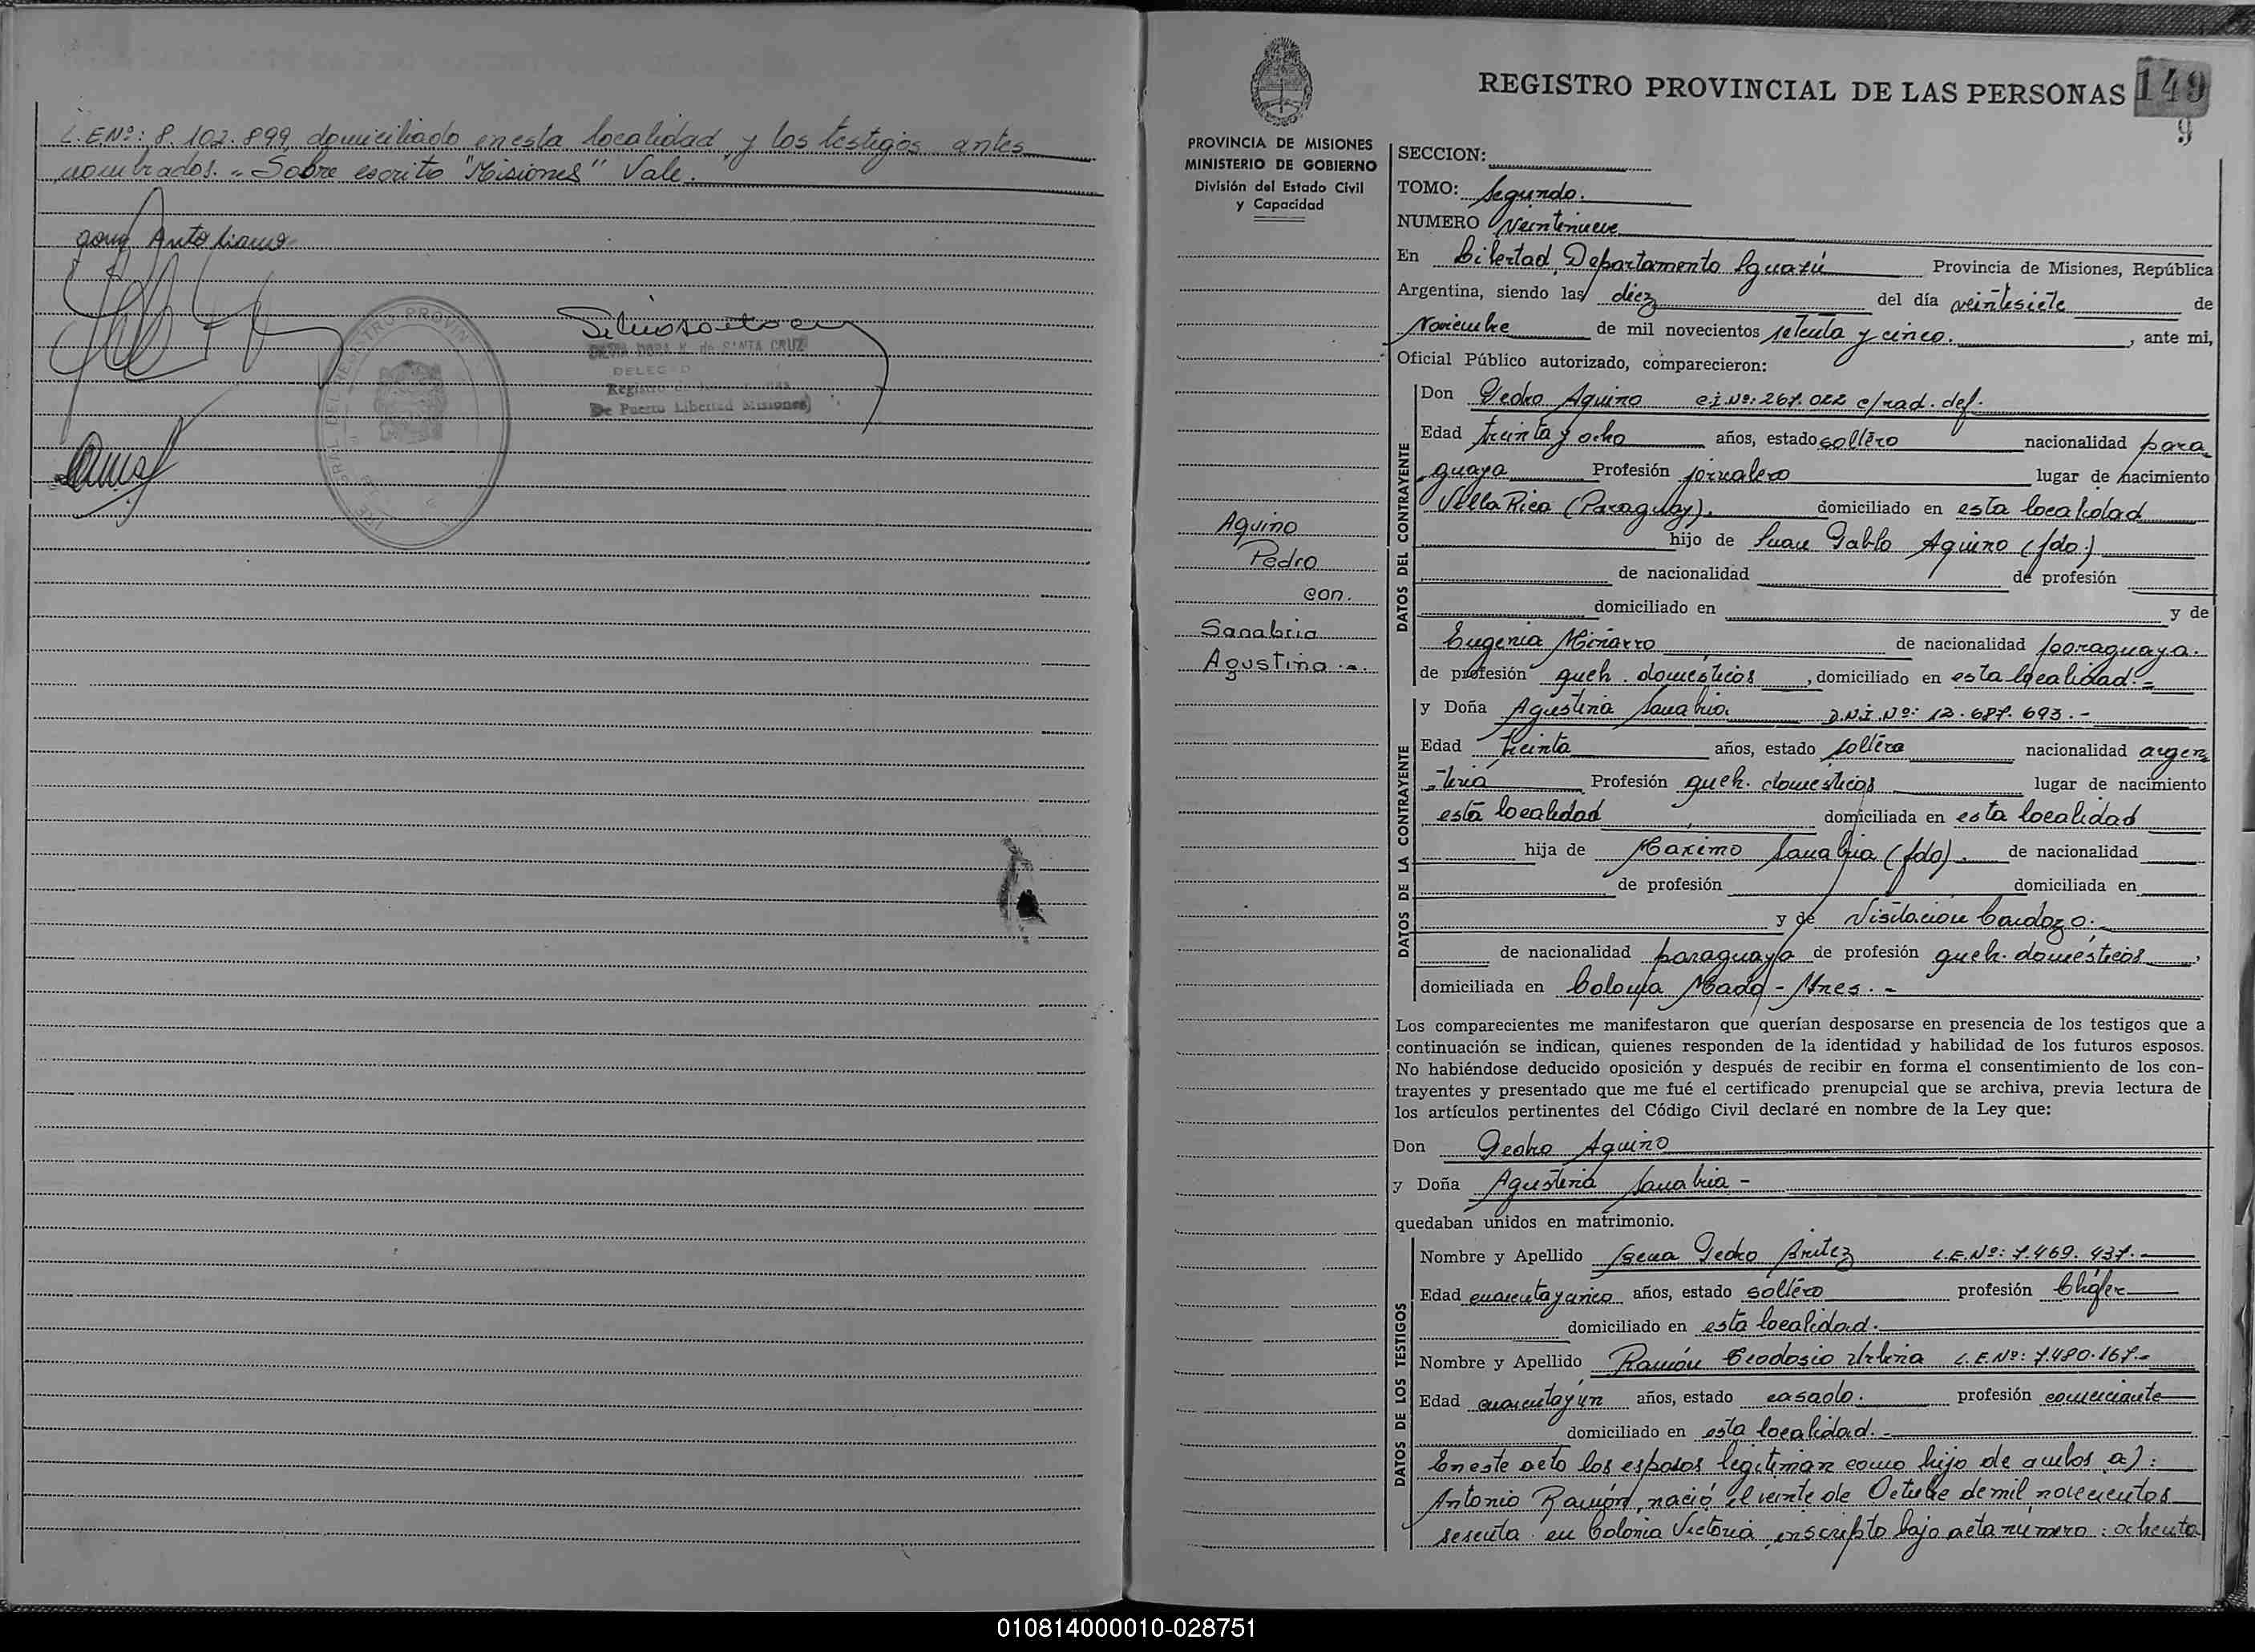 L.E.Nº: 8.102.899, domiciliado en esta localidad, y los testigos antes
nombrados.- Sobre escrito "Misiones" Vale.
DELEG
Registro
De Puerto Libertad Misiones)
REGISTRO PROVINCIAL DE LAS PERSONAS
149
9
PROVINCIA DE MISIONES
MINISTERIO DE GOBIERNO
División del Estado Civil
y Capacidad
Aquino
Pedro
con.
Sanabria
Agustina.-.
SECCION:
TOMO: Segundo.
NUMERO Veintinueve
En Libertad, Departamento Iguazú Provincia de Misiones, República
Argentina, siendo las diez del día veintisiete de
Noviembre de mil novecientos setenta y cinco. , ante mi,
Oficial Público autorizado, comparecieron:
DATOS DEL CONTRAYENTE
Don Pedro Aquino C.I.Nº: 267.022 c/rad. def.
Edad treinta y ocho años, estado soltero nacionalidad para
guaya Profesión jornalero lugar de nacimiento
Villa Rica (Paraguay). domiciliado en esta localidad
hijo de Juan Pablo Aquino (fdo.)
de nacionalidad de profesión
domiciliado en y de
Eugenia Miñarro de nacionalidad paraguaya.
de profesión queh. domésticos , domiciliado en esta localidad.-
DATOS DE LA CONTRAYENTE
y Doña Agustina Sanabria D.N.I.Nº: 12.687.693.-
Edad treinta años, estado soltera nacionalidad argen
-tina Profesión queh. domésticos lugar de nacimiento
esta localidad domiciliada en esta localidad
hija de Maximo Sanabria (fdo). de nacionalidad
de profesión domiciliada en
y de Visitación Cardozo.
de nacionalidad paraguaya de profesión queh. domésticos ,
domiciliada en Colonia Mado - Mnes.-
Los comparecientes me manifestaron que querían desposarse en presencia de los testigos que a
continuación se indican, quienes responden de la identidad y habilidad de los futuros esposos.
No habiéndose deducido oposición y después de recibir en forma el consentimiento de los con-
trayentes y presentado que me fué el certificado prenupcial que se archiva, previa lectura de
los artículos pertinentes del Código Civil declaré en nombre de la Ley que:
Don Pedro Aquino
y Doña Agustina Sanabria -
quedaban unidos en matrimonio.
DATOS DE LOS TESTIGOS
Nombre y Apellido Pedro Britez L.E.Nº: 7.469.437.-
Edad cuarenta y cinco años, estado soltero profesión Chófer
domiciliado en esta localidad.
Nombre y Apellido Ramón Teodosio L.E.Nº: 7.480.167.-
Edad cuarenta y un años, estado casado. profesión comerciante
domiciliado en esta localidad.-
En este acto los esposos legitiman como hijo de ambos a):
Antonio Ramón, nació el veinte de Octubre de mil novecientos
sesenta en Colonia Victoria, inscripto bajo acta número: ochenta
010814000010-028751